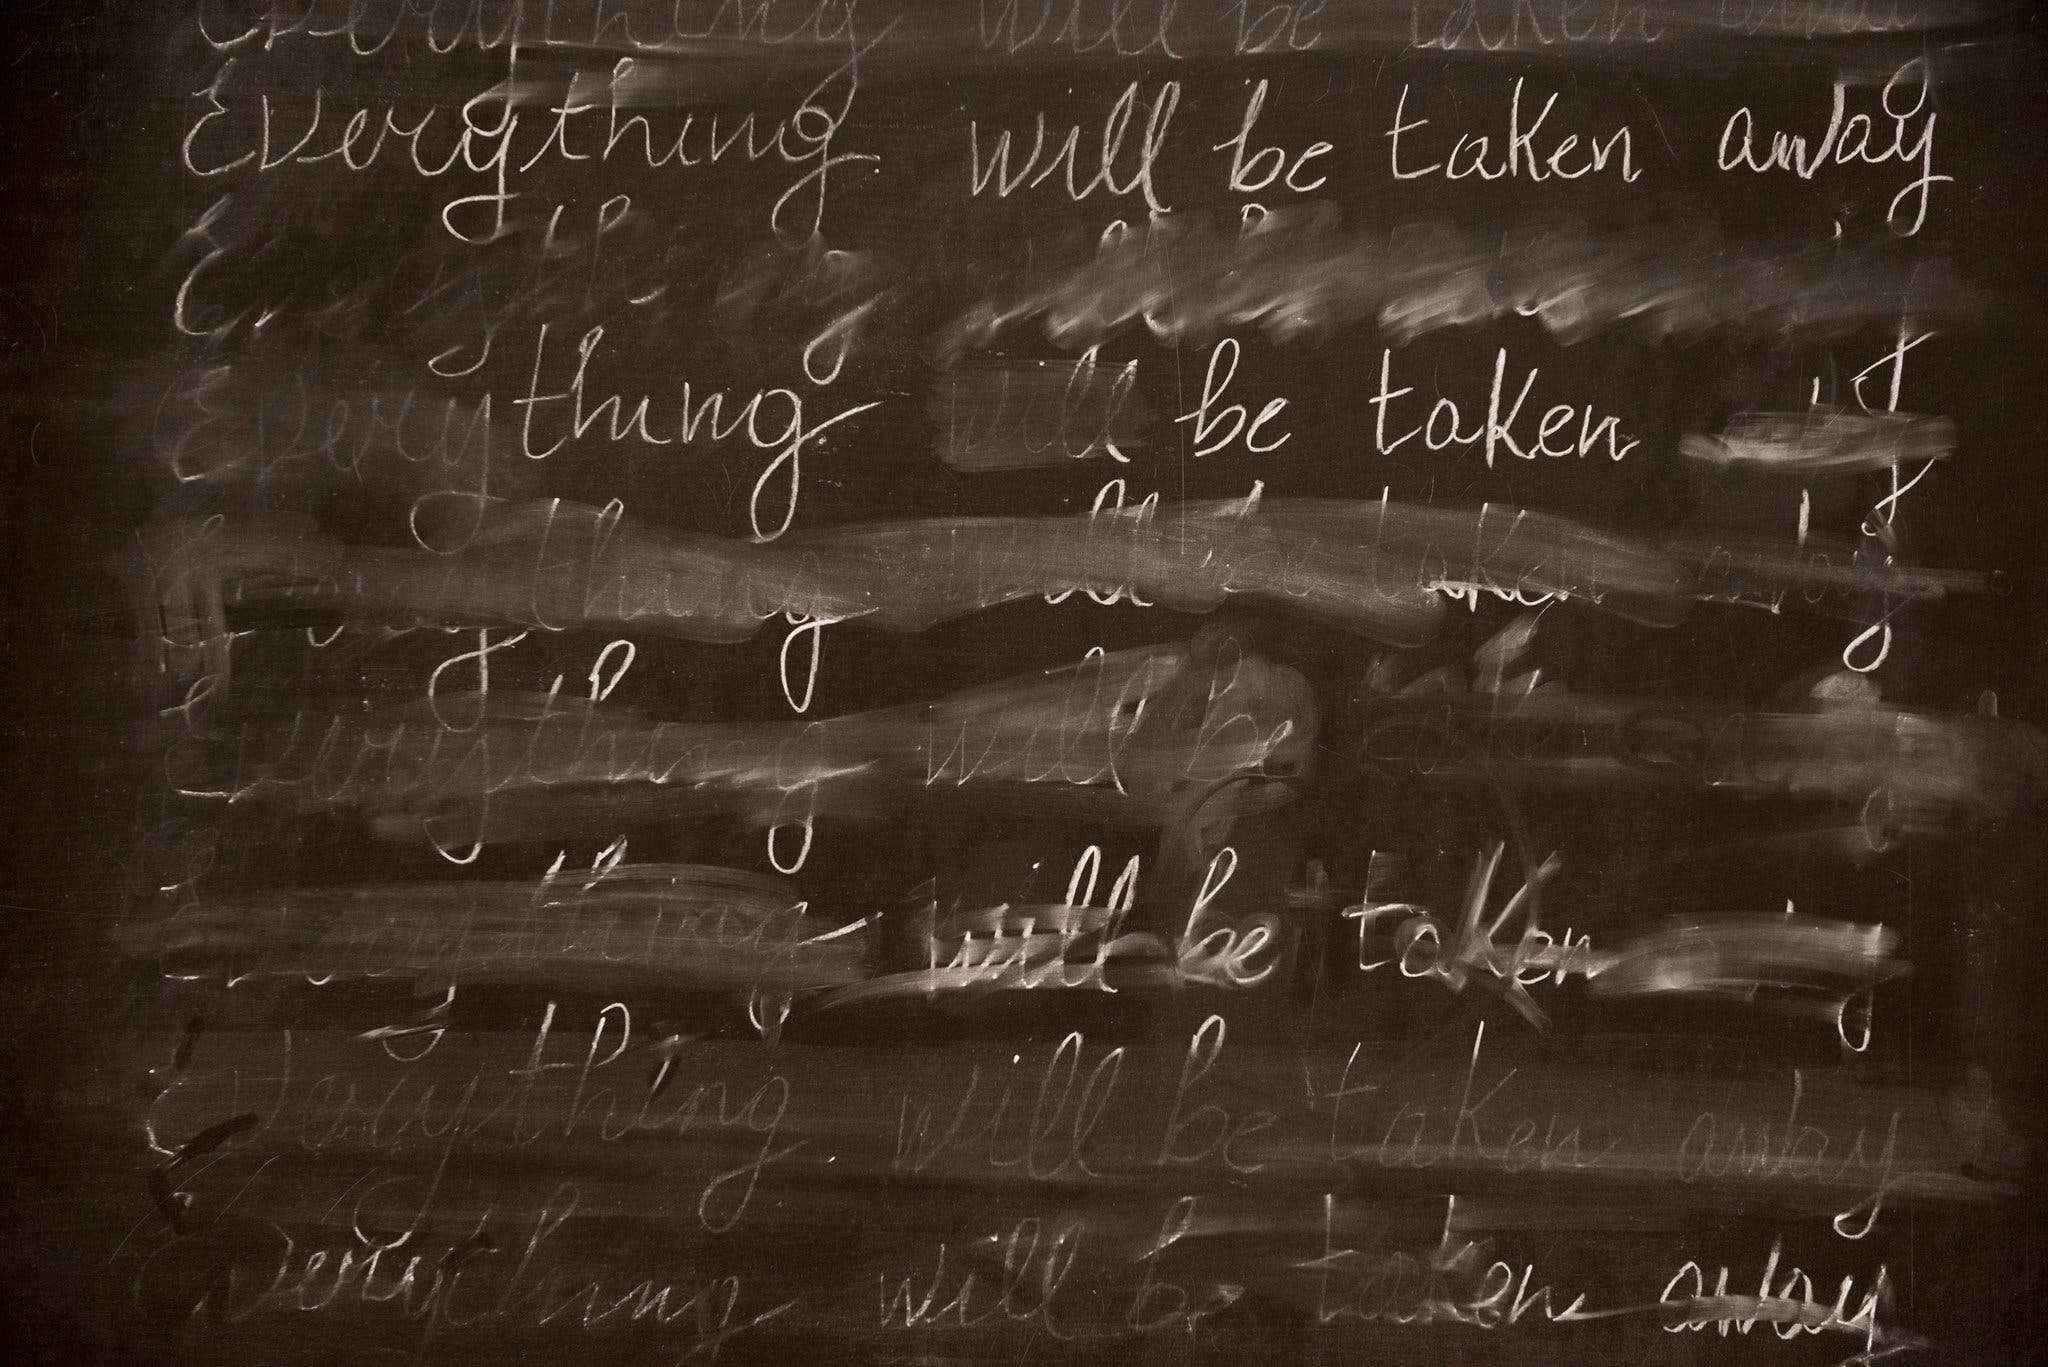 Everything will be taken away
Everything will be taken away
Everything
Everything will be taken
Everything will be taken away
Everything will be taken
Everything will be taken
Everything will be taken away
Everything will be taken away